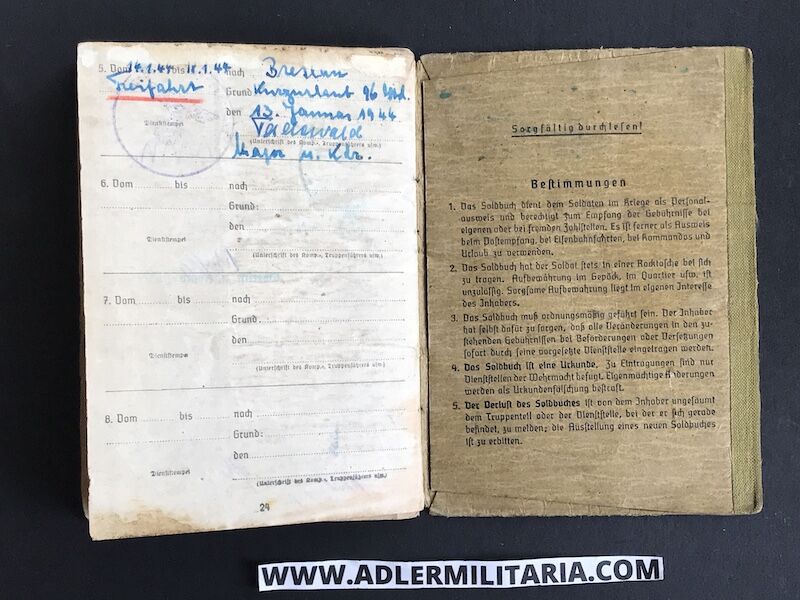 5. Vom 14.1.44 bis 18.1.44 nach Breslau
Freifahrt Grund: Kurzurlaub 96 Std.
den 13. Januar 1944
Dienststempel
(Unterschrift des Komp.-, Truppenführers usw.)
Major u. Kdr.
6. Vom bis nach
Grund:
den
Dienststempel
(Unterschrift des Komp.-, Truppenführers usw.)
7. Vom bis nach
Grund:
den
Dienststempel
(Unterschrift des Komp.-, Truppenführers usw.)
8. Vom bis nach
Grund:
den
Dienststempel
(Unterschrift des Komp.-, Truppenführers usw.)
24
Sorgfältig durchlesen!
Bestimmungen
1. Das Soldbuch dient dem Soldaten im Kriege als Personal-
ausweis und berechtigt zum Empfang der Gebührnisse bei
eigenen oder bei fremden Zahlstellen. Es ist ferner als Ausweis
beim Postempfang, bei Eisenbahnfahrten, bei Kommandos und
Urlaub zu verwenden.
2. Das Soldbuch hat der Soldat stets in einer Rocktasche bei sich
zu tragen. Aufbewahrung im Gepäck, im Quartier usw. ist
unzulässig. Sorgsame Aufbewahrung liegt im eigenen Interesse
des Inhabers.
3. Das Soldbuch muß ordnungsmäßig geführt sein. Der Inhaber
hat selbst dafür zu sorgen, daß alle Veränderungen in den zu-
stehenden Gebührnissen bei Beförderungen oder Versetzungen
sofort durch seine vorgesetzte Dienststelle eingetragen werden.
4. Das Soldbuch ist eine Urkunde. Zu Eintragungen sind nur
Dienststellen der Wehrmacht befugt. Eigenmächtige Änderungen
werden als Urkundenfälschung bestraft.
5. Der Verlust des Soldbuches ist von dem Inhaber ungesäumt
dem Truppenteil oder der Dienststelle, bei der er sich gerade
befindet, zu melden; die Ausstellung eines neuen Soldbuches
ist zu erbitten.
WWW.ADLERMILITARIA.COM